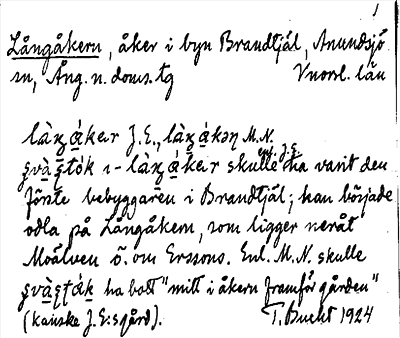 1
Långåkern, åker i byn Brandtjäl, Anundsjö
sn, Ång. n. doms. tg Vnorrl. län
J.E., M.N.
enl. J.E.
skulle ha varit den
förste bebyggaren i Brandtjäl; han började
odla på Långåkern, som ligger neråt
Moälven ö. om Erssons. Enl. M.N. skulle
ha bott "mitt i åkern framför gården"
(kanske J.E:s gård). T. Bucht 1924